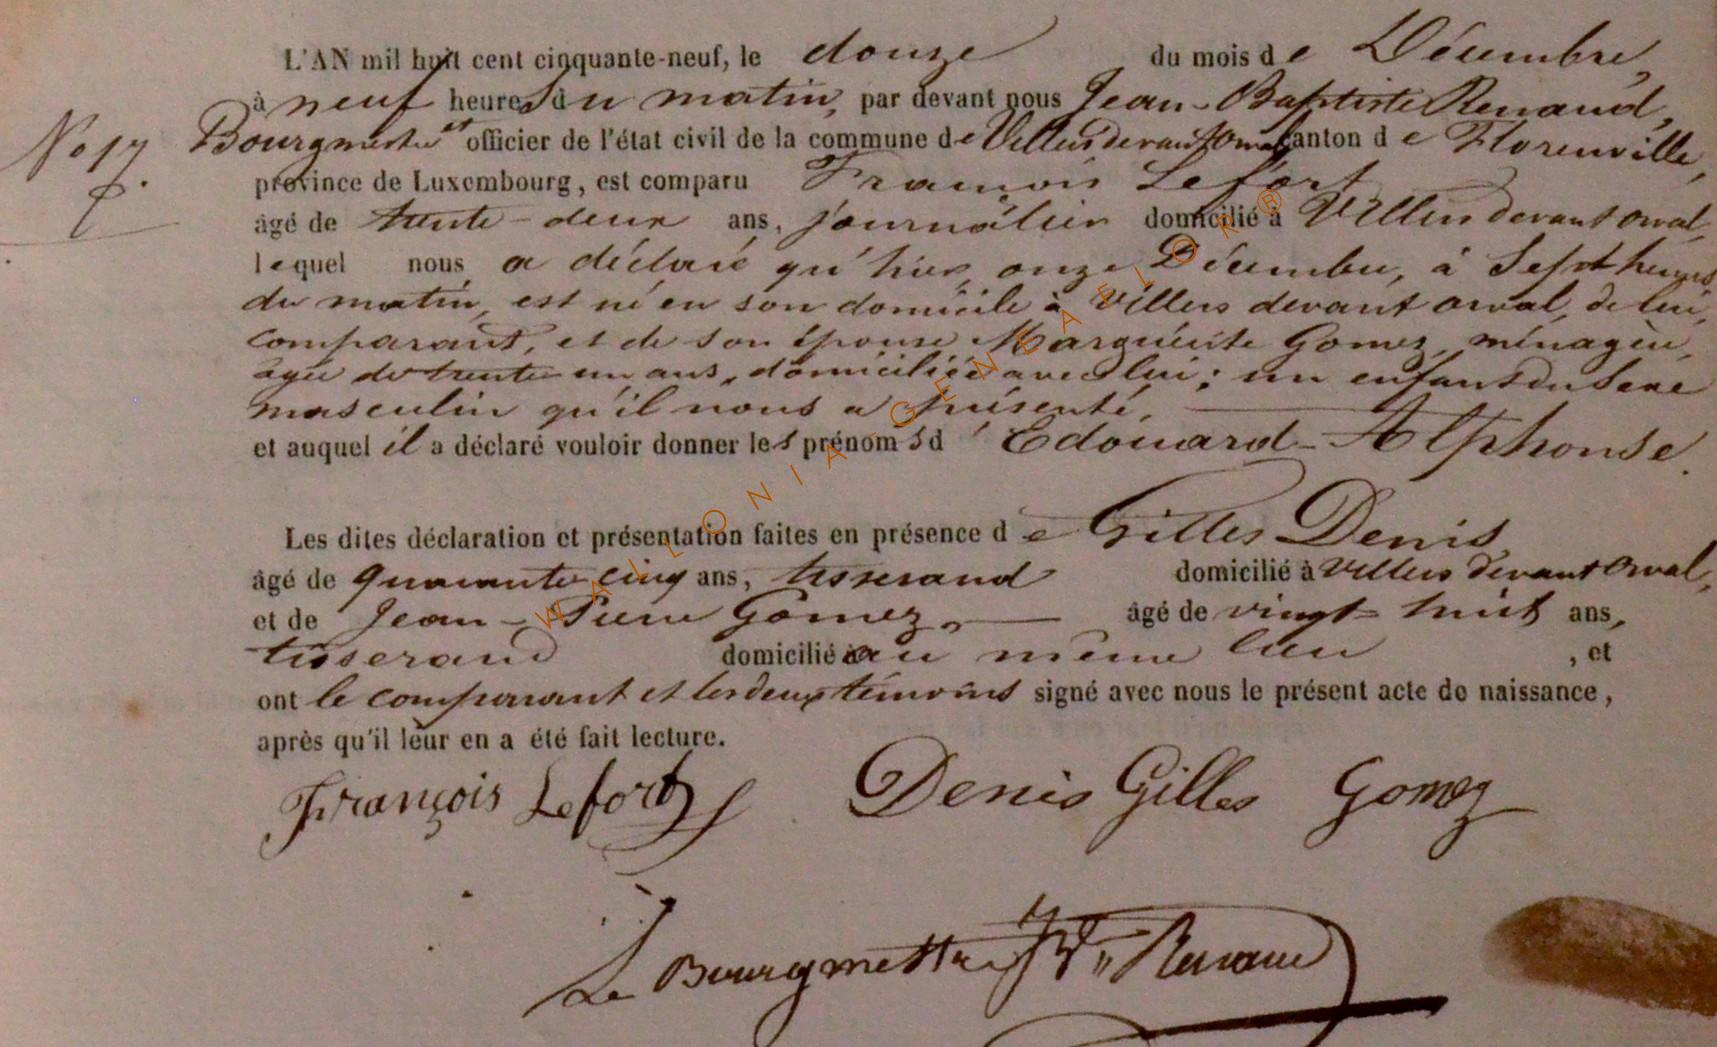 L'AN mil huit cent cinquante-neuf, le douze du mois de Décembre,
à neuf heures du matin, par devant nous Jean-Baptiste Renaud,
No 17. Bourgmestre et officier de l'état civil de la commune de Villers devant Orval canton de Florenville,
province de Luxembourg, est comparu François Lefort
âgé de trente-deux ans, journalier domicilié à Villers devant orval,
lequel nous a déclaré qu'hier, onze Décembre, à Sept heures
du matin, est né en son domicile à Villers devant orval, de lui,
comparant, et de son épouse Marguérite Gomez, ménagère,
agée de trente un ans, domiciliée avec lui; un enfant du Sexe
masculin qu'il nous a présenté,
et auquel il a déclaré vouloir donner les prénoms d'Edouard-Alphonse.
Les dites déclaration et présentation faites en présence de Gilles Denis
âgé de quarante-cinq ans, tisserand domicilié à Villers devant Orval,
et de Jean-Pierre Gomez, âgé de vingt-huit ans,
tisserand domicilié au même lieu , et
ont le comparant et les deux témoins signé avec nous le présent acte de naissance,
après qu'il leur en a été fait lecture.
François Lefort Denis Gilles Gomez
Le Bourgmestre Renaud
WALLONIA-GENEALOR®